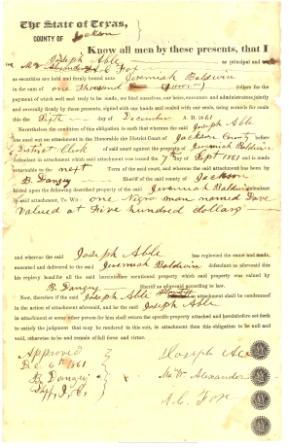 The State of Texas,
COUNTY OF Jackson
Know all men by these presents, that I
Joseph Able
as principal and
A C Fox
as securities are held and firmly bound unto Jeremiah Baldwin
in the sum of one Thousand dollars for the
payment of which well and truly to be made, we bind ourselves, our heirs, executors and administrators jointly
and severally firmly by these presents, signed with our hands and sealed with our seals, using scrawls for seals
this Fifth day of December A. D. 1861
Nevertheless the condition of this obligation is such that whereas the said Joseph Able
sued out an attachment in the Honorable the District Court of Jackson County before
District Clerk of said court against the property of Jeremiah Baldwin
defendant in attachment which said attachment was issued the 7th day of Sept 1861 and is made
returnable to the next Term of the said court, and whereas the said attachment has been by
B. Dangey Sheriff of the said county of Jackson
levied upon the following described property of the said Jeremiah Baldwin defendant
in said attachment, To Wit: one Negro man named Dave
valued at Five hundred dollars
and whereas the said Joseph Able has replevied the same and made,
executed and delivered to the said Jeremiah Baldwin defendant as aforesaid this
his replevy bond for all the hereinbefore mentioned property which said property was valued by
B Dangey Sheriff as aforesaid according to law.
Now, therefore if the said Joseph Able in attachment shall be condemned
in the action of attachment aforesaid, and he the said Joseph Able
in attachment or some other person for him shall return the specific property attached and hereinbefore set forth
to satisfy the judgment that may be rendered in this suit, in attachment then this obligation to be null and
void, otherwise to remain of full force and virtue.
Approved
Dec 6th 1861
B Dangey
Joseph Able
Alexander
A. C. Fox